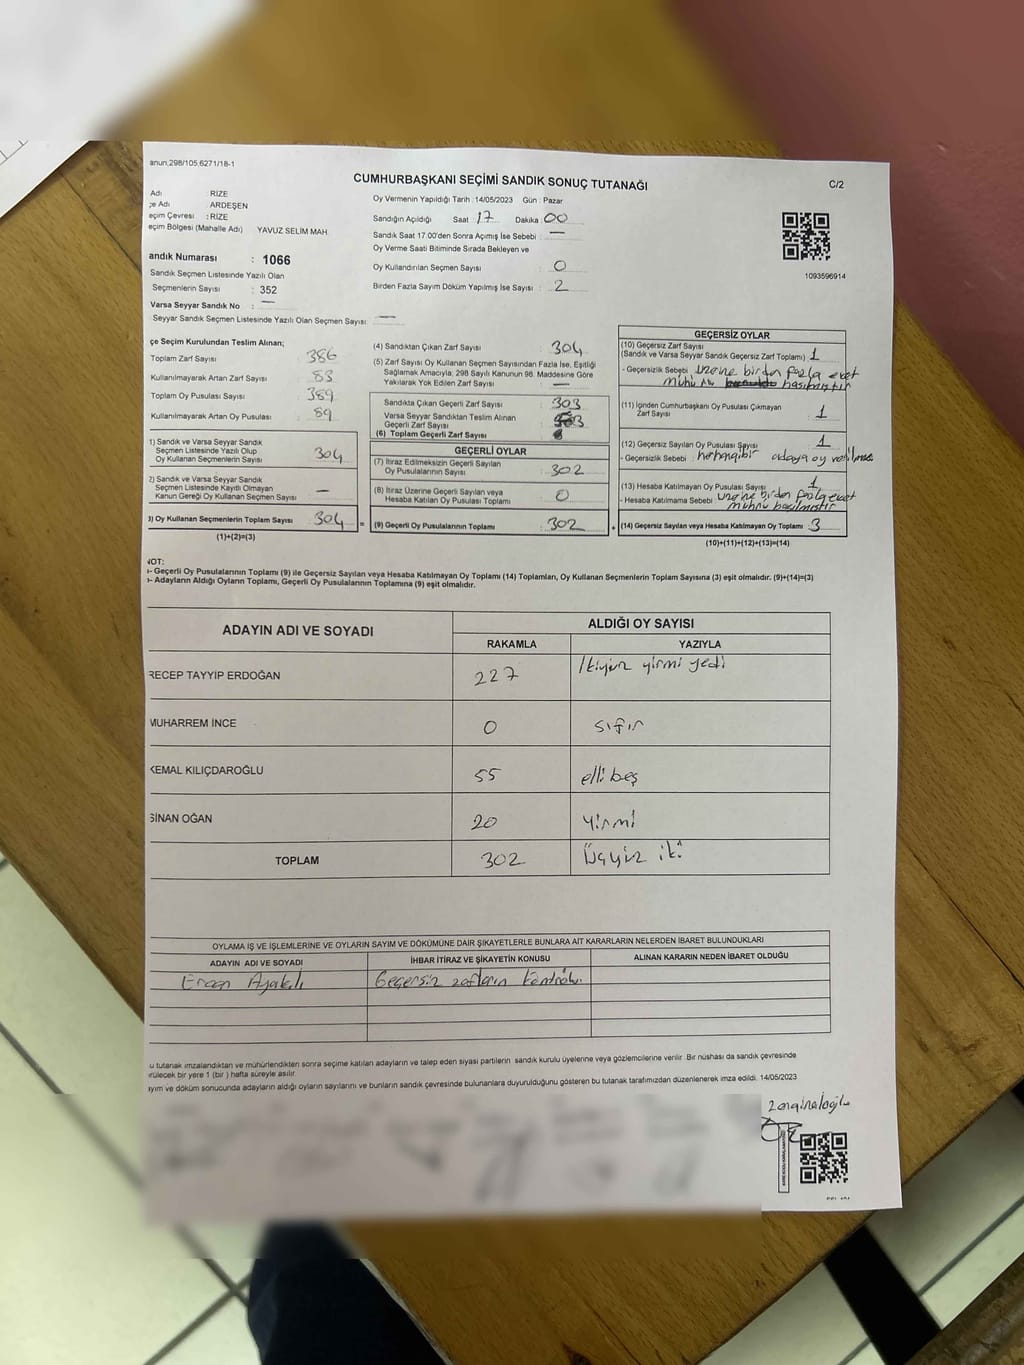 anun,298/105,6271/18-1
CUMHURBAŞKANI SEÇİMİ SANDIK SONUÇ TUTANAĞI
C/2
Adı : RİZE
çe Adı : ARDEŞEN
eçim Çevresi : RİZE
eçim Bölgesi (Mahalle Adı) YAVUZ SELİM MAH.
andık Numarası : 1066
Sandık Seçmen Listesinde Yazılı Olan
Seçmenlerin Sayısı : 352
Varsa Seyyar Sandık No : —
Seyyar Sandık Seçmen Listesinde Yazılı Olan Seçmen Sayısı: —
Oy Vermenin Yapıldığı Tarih : 14/05/2023 Gün : Pazar
Sandığın Açıldığı Saat 17 Dakika 00
Sandık Saat 17.00'den Sonra Açımış İse Sebebi : —
Oy Verme Saati Bitiminde Sırada Bekleyen ve
Oy Kullandırılan Seçmen Sayısı : 0
Birden Fazla Sayım Döküm Yapılmış İse Sayısı : 2
1093596914
çe Seçim Kurulundan Teslim Alınan;
Toplam Zarf Sayısı 386
Kullanılmayarak Artan Zarf Sayısı 83
Toplam Oy Pusulası Sayısı 389
Kullanılmayarak Artan Oy Pusulası 89
1) Sandık ve Varsa Seyyar Sandık
Seçmen Listesinde Yazılı Olup
Oy Kullanan Seçmenlerin Sayısı 304
2) Sandık ve Varsa Seyyar Sandık
Seçmen Listesinde Kayıtlı Olmayan
Kanun Gereği Oy Kullanan Seçmen Sayısı —
3) Oy Kullanan Seçmenlerin Toplam Sayısı 304
(1)+(2)=(3)
(4) Sandıktan Çıkan Zarf Sayısı : 304
(5) Zarf Sayısı Oy Kullanan Seçmen Sayısından Fazla İse, Eşitliği
Sağlamak Amacıyla, 298 Sayılı Kanunun 98. Maddesine Göre
Yakılarak Yok Edilen Zarf Sayısı : —
Sandıkta Çıkan Geçerli Zarf Sayısı : 303
Varsa Seyyar Sandıktan Teslim Alınan
Geçerli Zarf Sayısı
(6) Toplam Geçerli Zarf Sayısı :
GEÇERLİ OYLAR
(7) İtiraz Edilmeksizin Geçerli Sayılan
Oy Pusulalarının Sayısı : 302
(8) İtiraz Üzerine Geçerli Sayılan veya
Hesaba Katılan Oy Pusulası Toplamı : 0
= (9) Geçerli Oy Pusulalarının Toplamı : 302
GEÇERSİZ OYLAR
(10) Geçersiz Zarf Sayısı
(Sandık ve Varsa Seyyar Sandık Geçersiz Zarf Toplamı) 1
- Geçersizlik Sebebi : üzerine birden fazla evet
mührü basılmıştır
(11) İçinden Cumhurbaşkanı Oy Pusulası Çıkmayan
Zarf Sayısı : 1
(12) Geçersiz Sayılan Oy Pusulası Sayısı : 1
- Geçersizlik Sebebi : herhangibir adaya oy verilmedi
(13) Hesaba Katılmayan Oy Pusulası Sayısı : 1
- Hesaba Katılmama Sebebi : üzerine birden fazla evet
mührü basılmıştır
+ (14) Geçersiz Sayılan veya Hesaba Katılmayan Oy Toplamı : 3
(10)+(11)+(12)+(13)=(14)
NOT:
- Geçerli Oy Pusulalarının Toplamı (9) ile Geçersiz Sayılan veya Hesaba Katılmayan Oy Toplamı (14) Toplamları, Oy Kullanan Seçmenlerin Toplam Sayısına (3) eşit olmalıdır. (9)+(14)=(3)
- Adayların Aldığı Oyların Toplamı, Geçerli Oy Pusulalarının Toplamına (9) eşit olmalıdır.
ADAYIN ADI VE SOYADI ALDIĞI OY SAYISI
RAKAMLA YAZIYLA
RECEP TAYYİP ERDOĞAN 227 İkiyüz yirmi yedi
MUHARREM İNCE 0 sıfır
KEMAL KILIÇDAROĞLU 55 elli beş
SİNAN OĞAN 20 yirmi
TOPLAM 302 Üçyüz iki
OYLAMA İŞ VE İŞLEMLERİNE VE OYLARIN SAYIM VE DÖKÜMÜNE DAİR ŞİKAYETLERLE BUNLARA AİT KARARLARIN NELERDEN İBARET BULUNDUKLARI
ADAYIN ADI VE SOYADI İHBAR İTİRAZ VE ŞİKAYETİN KONUSU ALINAN KARARIN NEDEN İBARET OLDUĞU
Geçersiz zarfların kontrolü.
u tutanak imzalandıktan ve mühürlendikten sonra seçime katılan adayların ve talep eden siyasi partilerin sandık kurulu üyelerine veya gözlemcilerine verilir. Bir nüshası da sandık çevresinde
rülecek bir yere 1 (bir ) hafta süreyle asılır.
ayım ve döküm sonucunda adayların aldığı oyların sayılarını ve bunların sandık çevresinde bulunanlara duyurulduğunu gösteren bu tutanak tarafımızdan düzenlenerek imza edildi. 14/05/2023